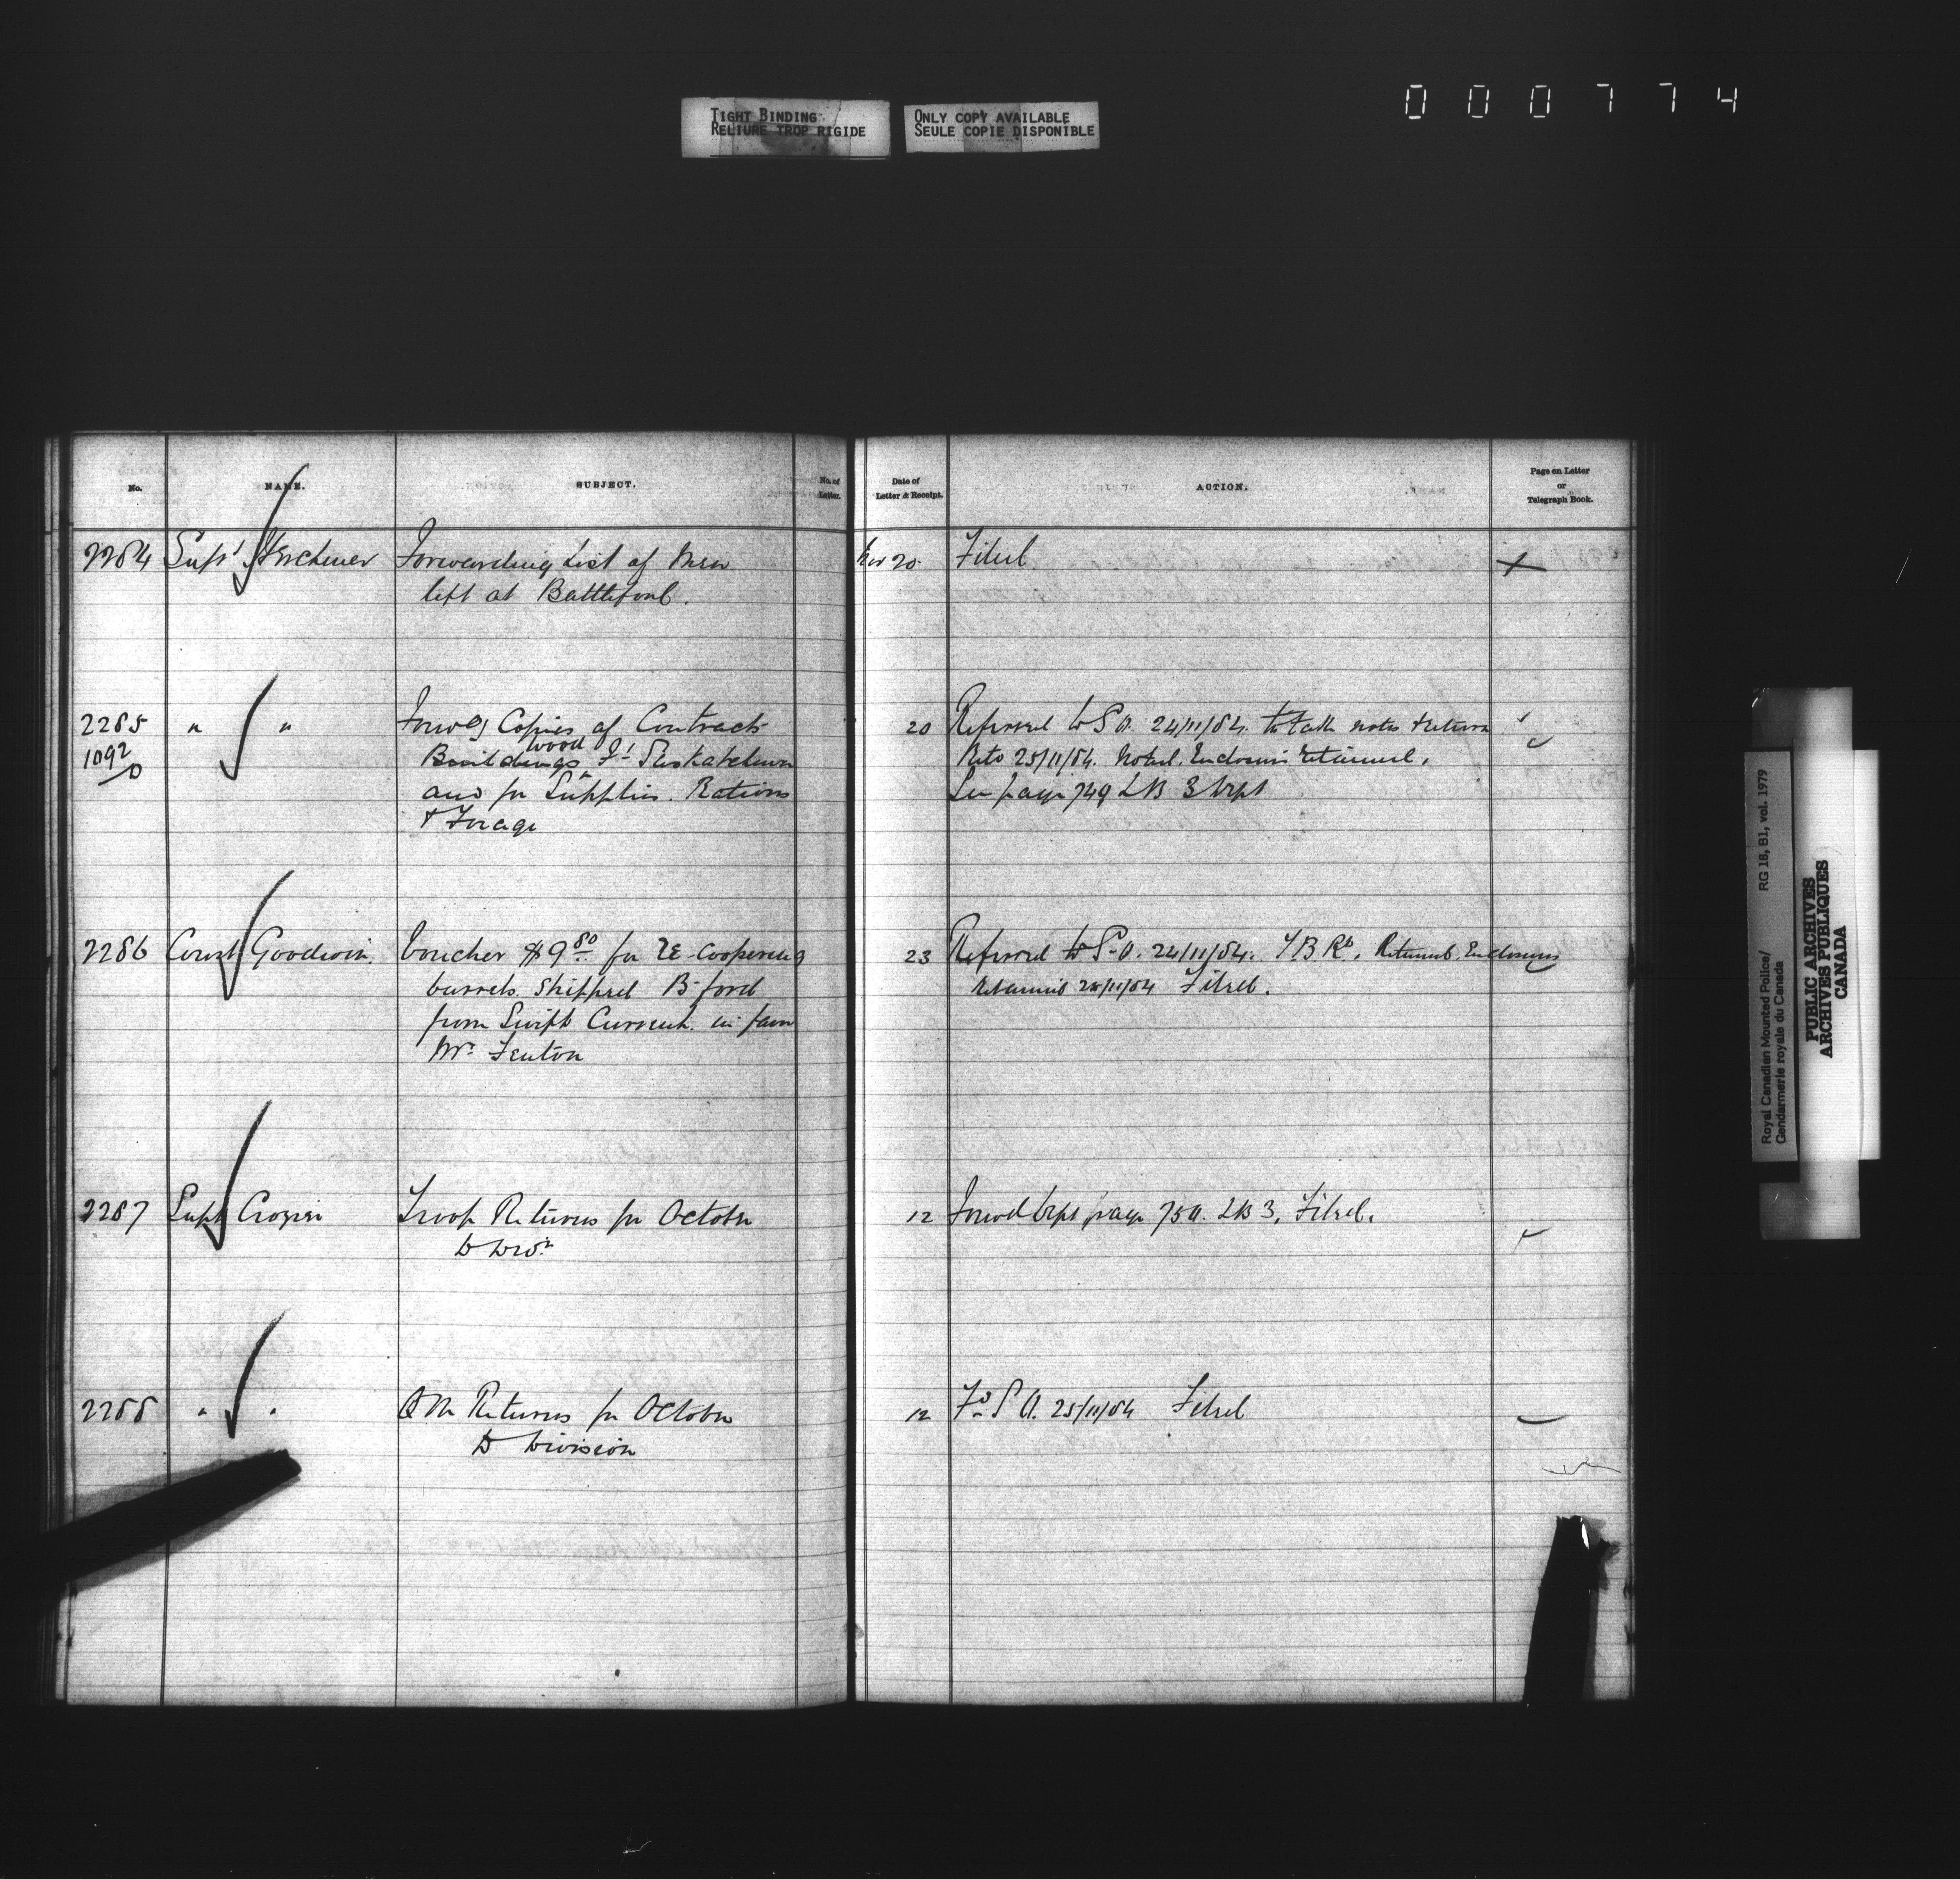 TIGHT BINDING
RELIURE TROP RIGIDE
ONLY COPY AVAILABLE
SEULE COPIE DISPONIBLE
000774
No. NAME. SUBJECT. No. of Letter. Date of Letter & Receipt. ACTION. Page on Letter or Telegraph Book.
2284 Supt Herchmer Forwarding List of Men Nov 20 Filed
left at Battleford.
2285 " " Forwdg Copies of Contracts 20 Referred to S.O. 24/11/84. to take notes & return
1092 Buildings wood Ft Saskatchewan Retd 25/11/84. Noted. Enclosures retained.
and for Supplies. Rations See page 749 LB 3
& Forage
2286 Const Goodwin. Voucher $9 80 for re-coopering 23 Referred to S.O. 24/11/84. Returned. Enclosures
barrels shipped B-ford retained 25/11/84 Filed.
from Swift Current. in favor
Mr. Fenton
2287 Supt Crozier Troop Returns for October 12 Forwd page 750. LB 3. Filed.
D Divn
2288 " " QM Returns for October 12 Fd S.O. 25/11/84 Filed
D Division
Royal Canadian Mounted Police/ RG 18, B1, vol. 1979
Gendarmerie royale du Canada
PUBLIC ARCHIVES
ARCHIVES PUBLIQUES
CANADA